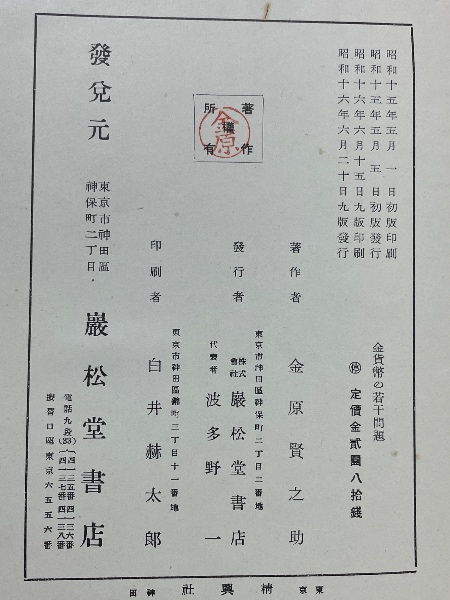 昭和十五年五月一日初版印刷
昭和十五年五月五日初版發行
昭和十六年六月十五日九版印刷
昭和十六年六月二十日九版發行
金貨幣の若干問題
停 定價金貳圓八拾錢
著作權所有
金原
著作者 金原賢之助
東京市神田區神保町二丁目二番地
發行者 株式會社 巖松堂書店
代表者 波多野一
東京市神田區錦町三丁目十一番地
印刷者 白井赫太郎
發兌元 東京市神田區神保町二丁目 巖松堂書店
振替口座東京六五五六番
東京 精興社 神田